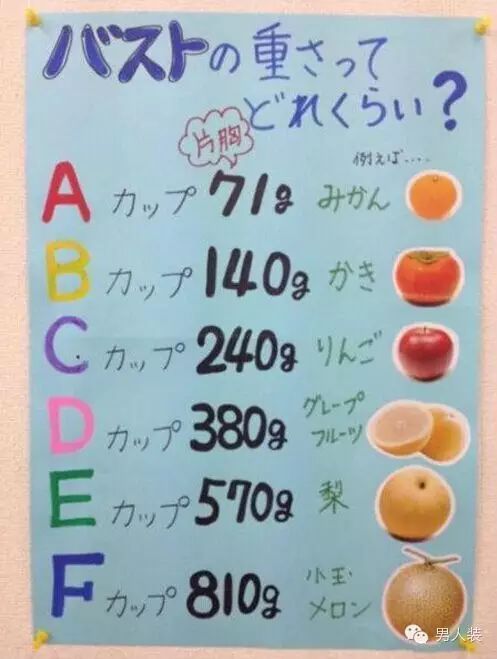 バストの重さって
どれくらい？
片胸
例えば....
Aカップ 71g みかん
Bカップ 140g かき
Cカップ 240g りんご
Dカップ 380g グレープ
フルーツ
Eカップ 570g 梨
Fカップ 810g 小玉
メロン
男人装